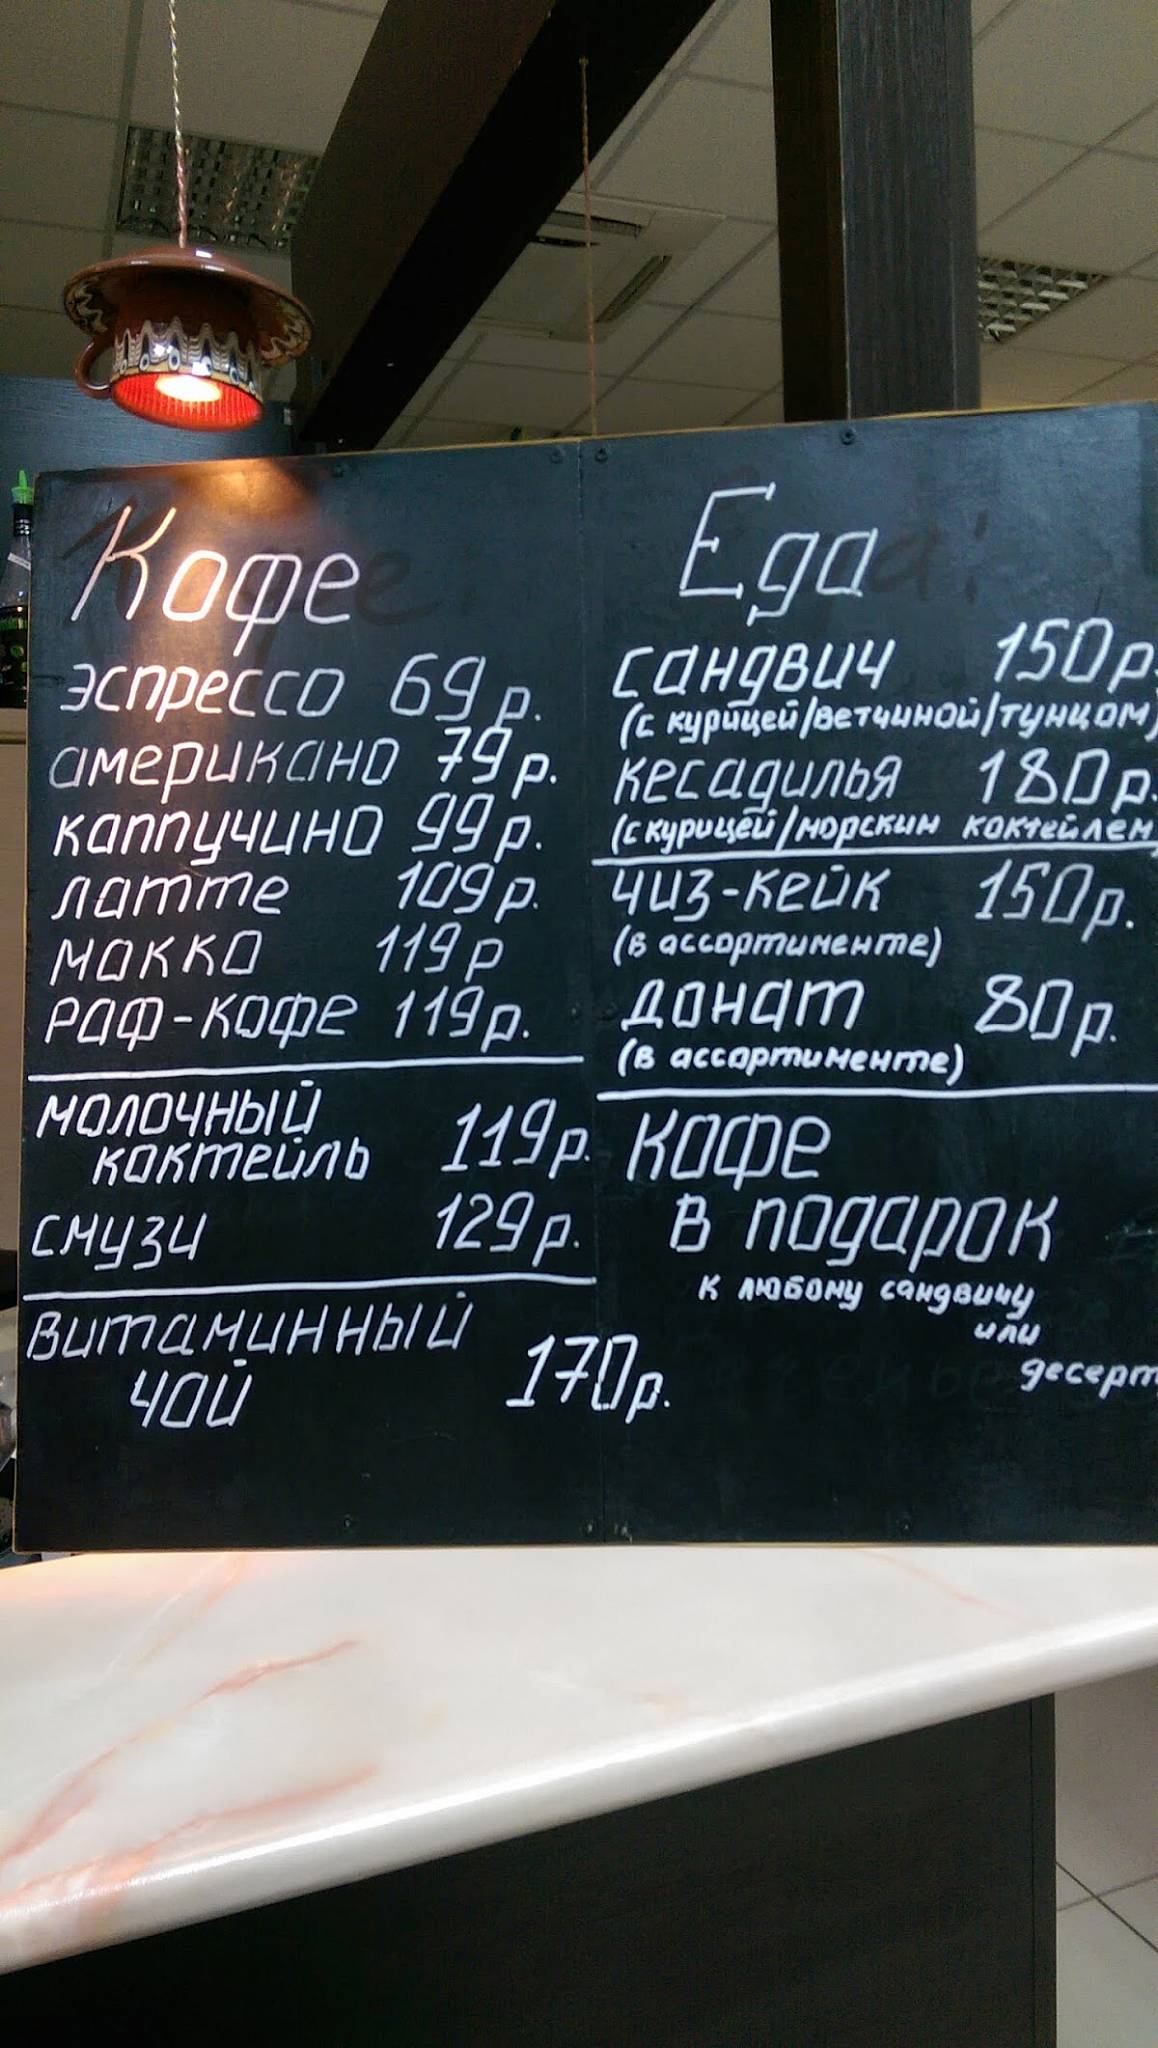 Кофе
эспрессо 69р.
американо 79р.
каппучино 99р.
латте 109р.
мокко 119р
раф-кофе 119р.
молочный
коктейль 119р.
смузи 129р.
витаминный
чай 170р.
Еда
сандвич 150р.
(с курицей/ветчиной/тунцом)
кесадилья 180р.
(с курицей/морским коктейлем)
чиз-кейк 150р.
(в ассортименте)
донат 80р.
(в ассортименте)
кофе
в подарок
к любому сандвичу
или
десерт